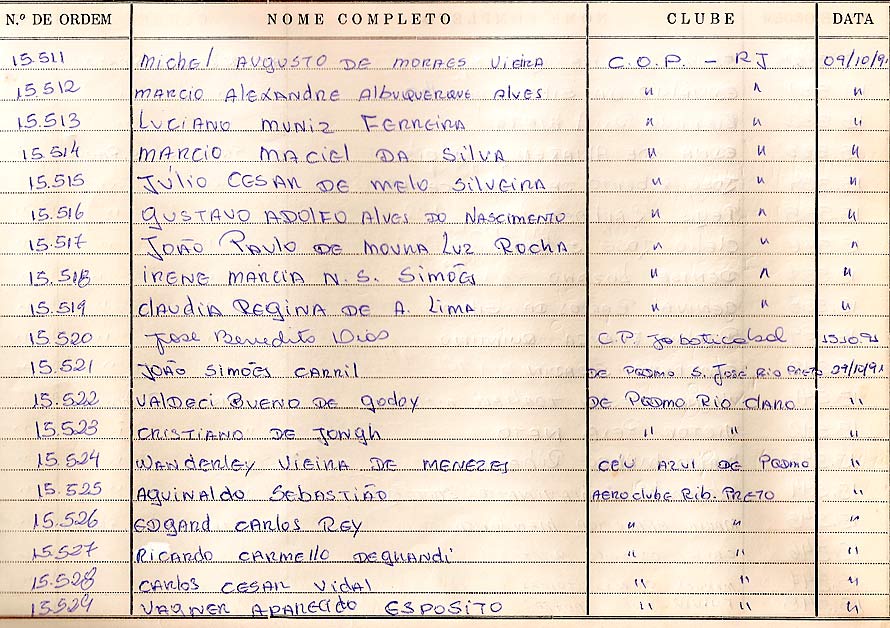 N.º DE ORDEM NOME COMPLETO CLUBE DATA
15.511 Michel Augusto de Moraes Vieira C.O.P. - RJ 09/10/91
15.512 Marcio Alexandre Albuquerque Alves " " "
15.513 Luciano Muniz Ferreira " " "
15.514 Marcio Maciel da Silva " " "
15.515 Júlio Cesar de Melo Silveira " " "
15.516 Gustavo Adolfo Alves do Nascimento " " "
15.517 João Paulo de Moura Luz Rocha " " "
15.518 Irene Márcia N. S. Simões " " "
15.519 Claudia Regina de A. Lima " " "
15.520 Jose Benedito Dias C.P. Jaboticabal
15.521 João Simões Carril de Pqdmo S. José Rio Preto
15.522 Valdeci Bueno de Godoy de Pqdmo Rio Claro "
15.523 Cristiano de Jongh " " "
15.524 Wanderley Vieira de Menezes Céu Azul de Pqdmo "
15.525 Aguinaldo Sebastião Aeroclube Rib. Preto "
15.526 Edgard Carlos Rey " " "
15.527 Ricardo Carmello " " "
15.528 Carlos Cesar Vidal " " "
15.529 Vagner Aparecido Esposito " " "